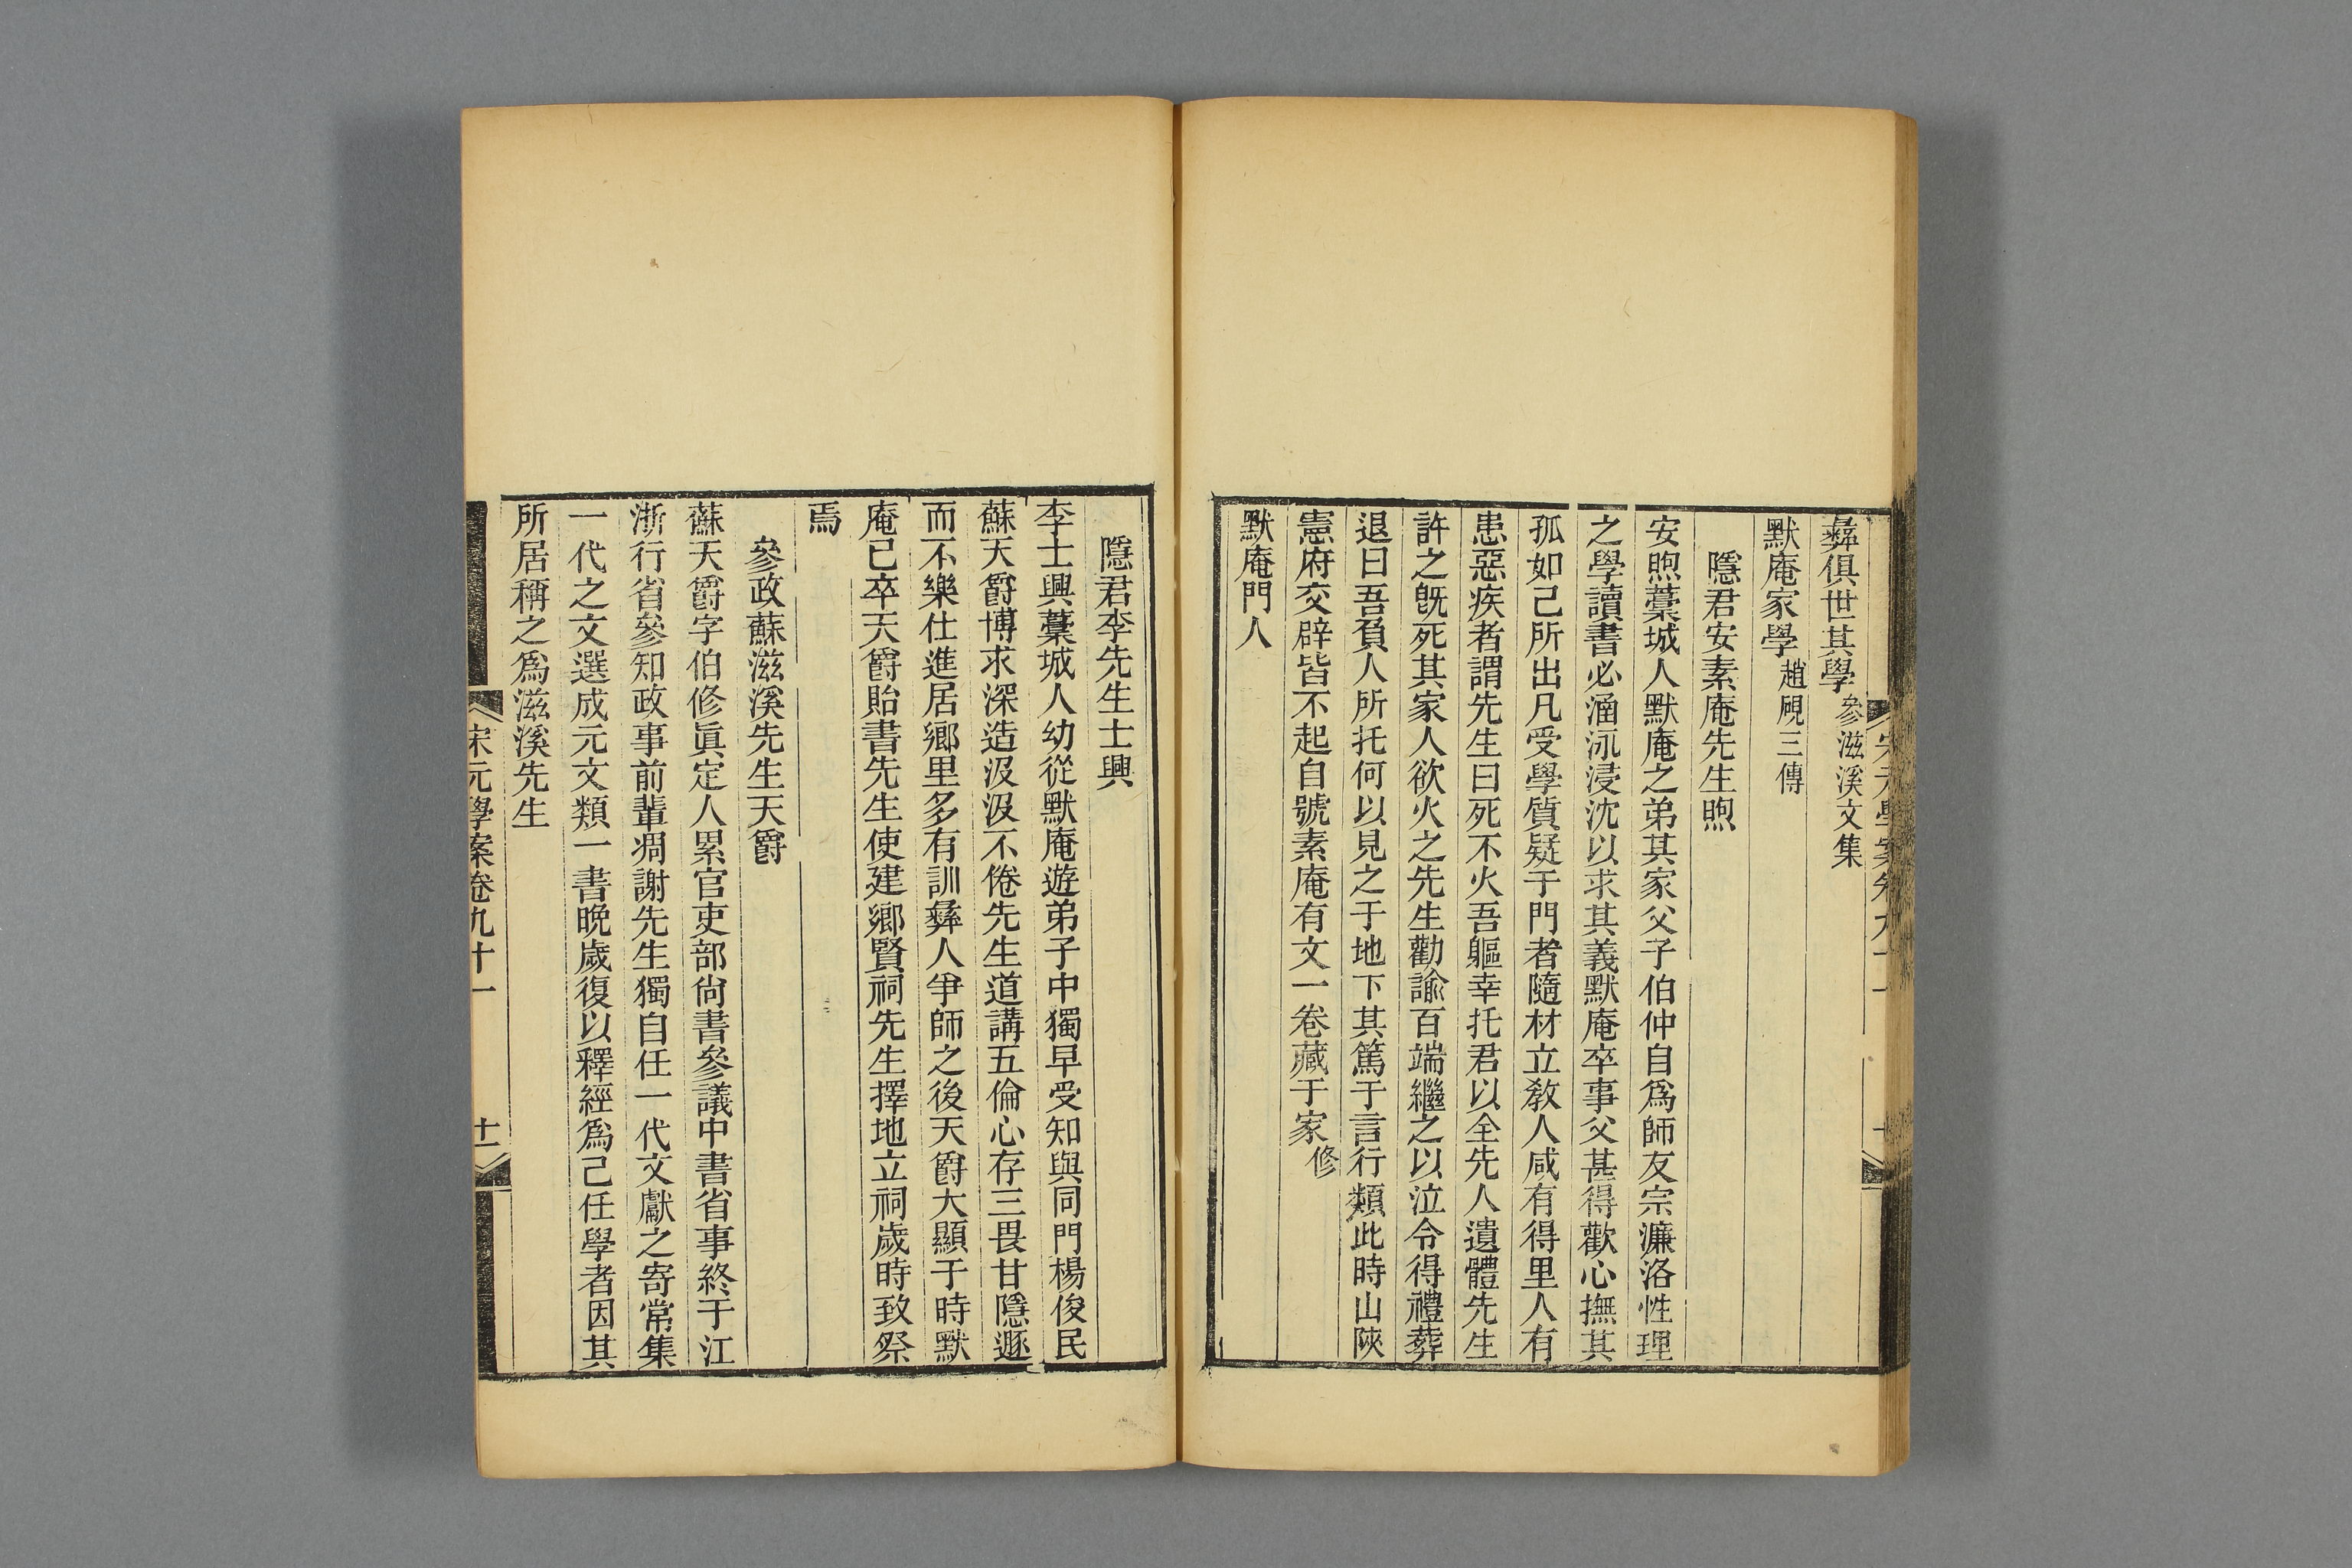 彝俱世其學參滋溪文集
默庵家學趙硯三傳
隱君安素庵先生煦
安煦藁城人默庵之弟其家父子伯仲自爲師友宗濂洛性理
之學讀書必涵泳浸沈以求其義默庵卒事父甚得歡心撫其
孤如己所出凡受學質疑于門者隨材立敎人咸有得里人有
患惡疾者謂先生曰死不火吾軀幸托君以全先人遺體先生
許之旣死其家人欲火之先生勸諭百端繼之以泣令得禮葬
退曰吾負人所托何以見之于地下其篤于言行類此時山陝
憲府交辟皆不起自號素庵有文一卷藏于家修
默庵門人
隱君李先生士興
李士興藁城人幼從默庵遊弟子中獨早受知與同門楊俊民
蘇天爵博求深造汲汲不倦先生道講五倫心存三畏甘隱遯
而不樂仕進居鄉里多有訓彝人爭師之後天爵大顯于時默
庵已卒天爵貽書先生使建鄉賢祠先生擇地立祠歲時致祭
焉
參政蘇滋溪先生天爵
蘇天爵字伯修眞定人累官吏部尙書參議中書省事終于江
浙行省參知政事前輩凋謝先生獨自任一代文獻之寄常集
一代之文選成元文類一書晩歲復以釋經爲己任學者因其
所居稱之爲滋溪先生
宋元學案卷九十一
十一